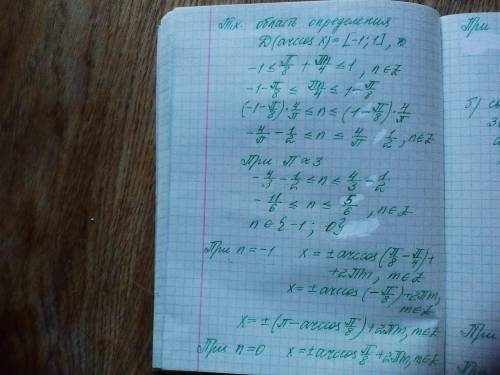 Т.к. область определения
D(arccos x) = [-1; 1],
-1 ≤ π/8 + πn/4 ≤ 1, n∈Z
-1 - π/8 ≤ πn/4 ≤ 1 - π/8
(-1 - π/8) · 4/π ≤ n ≤ (1 - π/8) · 4/π
-4/π - 1/2 ≤ n ≤ 4/π - 1/2, n∈Z
При π ≈ 3
-4/3 - 1/2 ≤ n ≤ 4/3 - 1/2
-11/6 ≤ n ≤ 5/6, n∈Z
n∈{-1; 0}
При n = -1 x = ± arccos(π/8 - π/4) +
+ 2πm, m∈Z
x = ± arccos(-π/8) + 2πm,
m∈Z
x = ± (π - arccos π/8) + 2πm, m∈Z
При n = 0 x = ± arccos π/8 + 2πm, m∈Z
При
5)